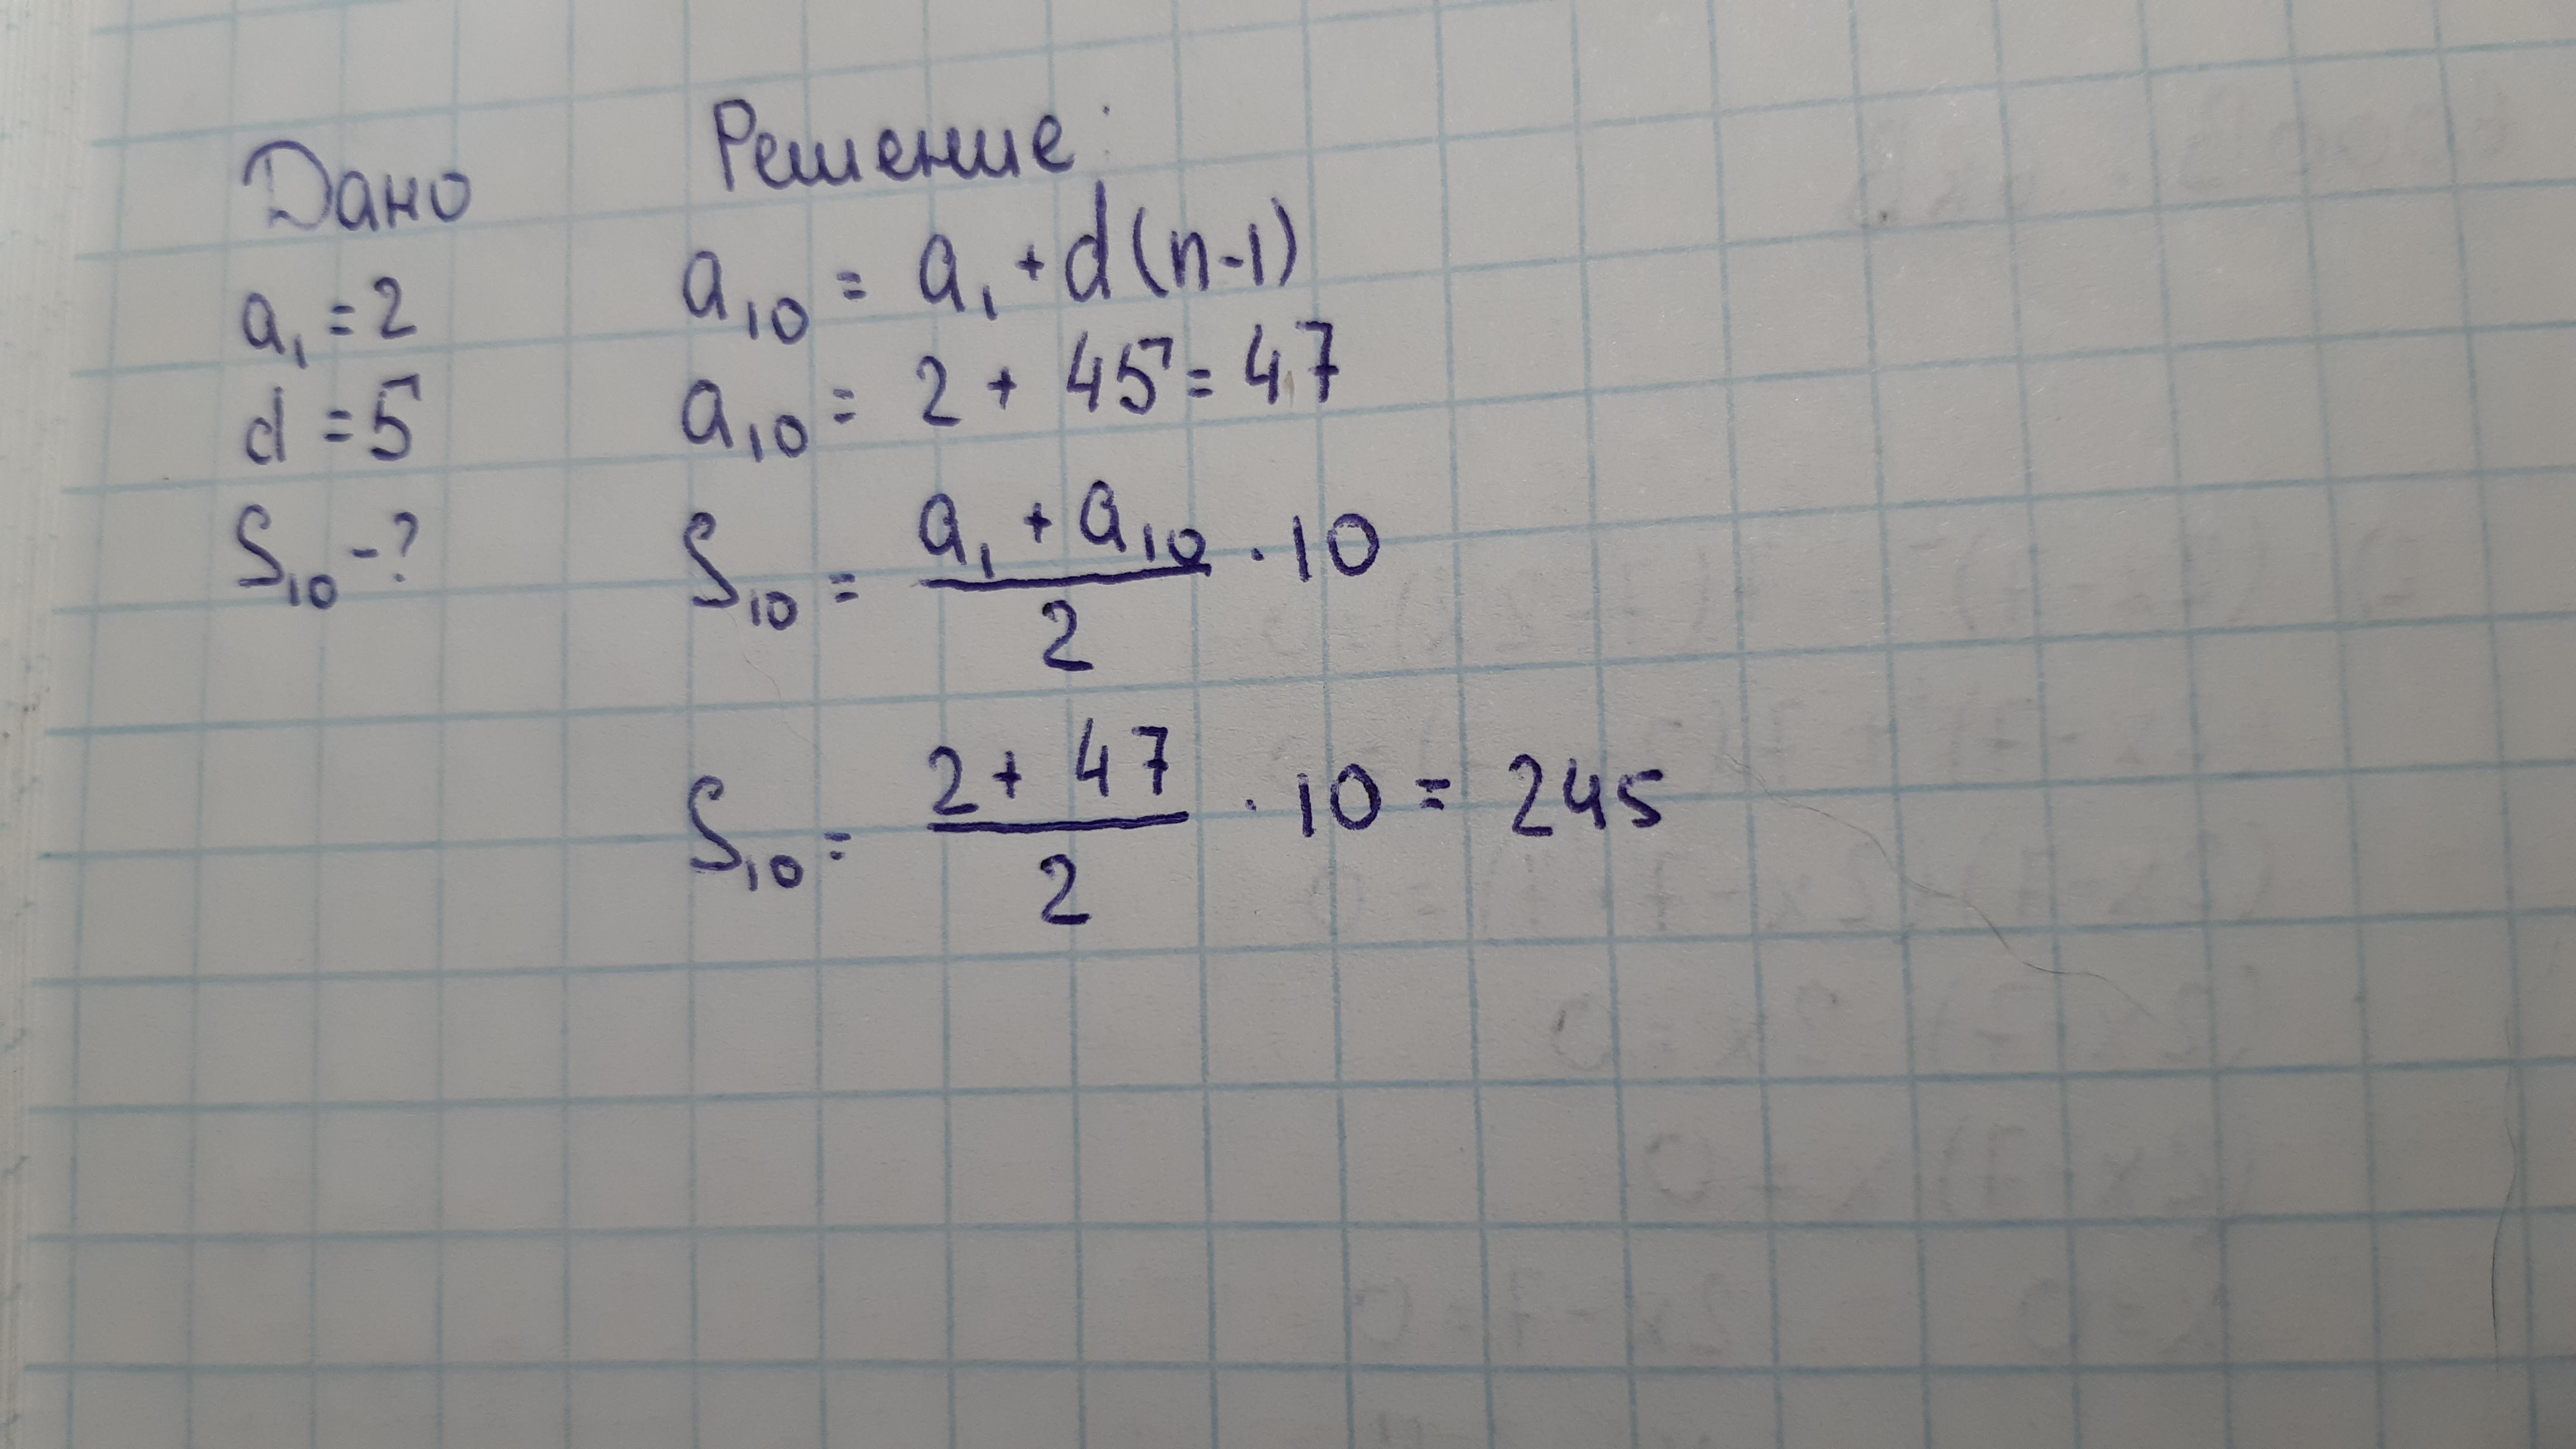 Дано
a₁ = 2
d = 5
S₁₀ - ?
Решение:
a₁₀ = a₁ + d(n-1)
a₁₀ = 2 + 45 = 47
S₁₀ = (a₁ + a₁₀)/2 · 10
S₁₀ = (2 + 47)/2 · 10 = 245